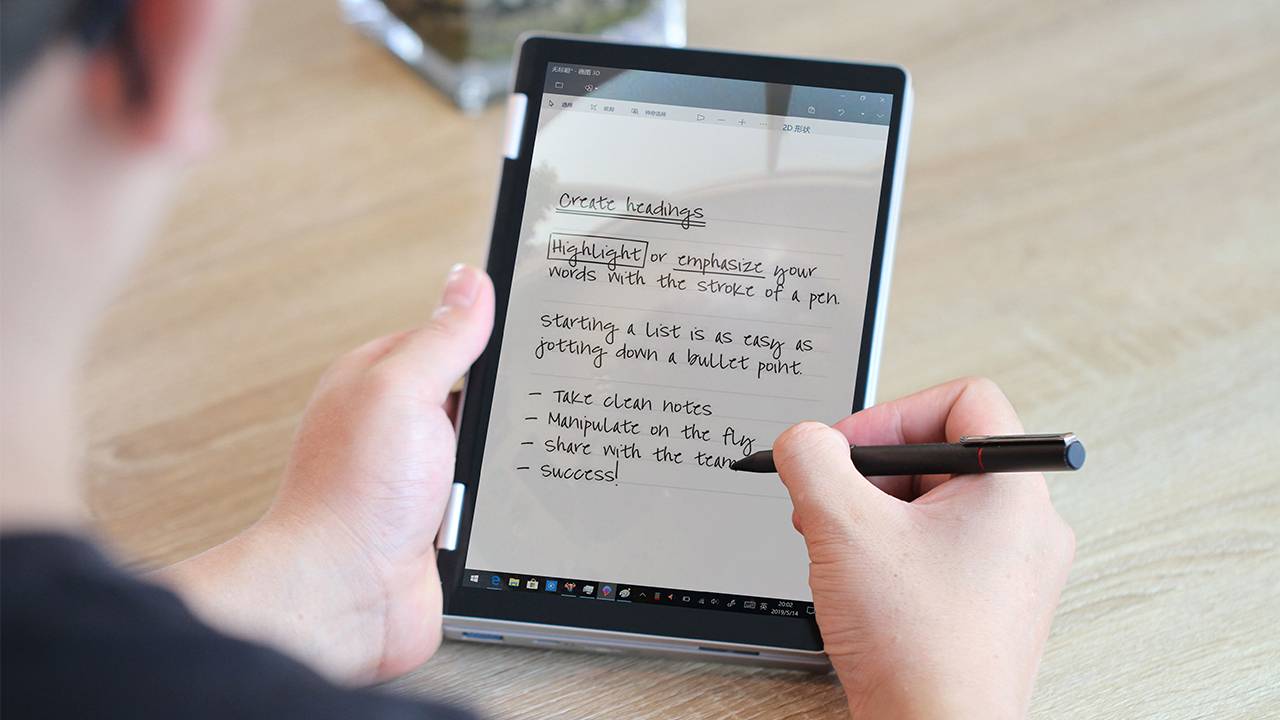 无标题* - 画图 3D
选择 裁剪 神奇选择
2D 形状
Create headings
Highlight or emphasize your
words with the stroke of a pen.
Starting a list is as easy as
jotting down a bullet point.
- Take clean notes
- Manipulate on the fly
- share with the team
- success!
英 20:02
2019/5/14